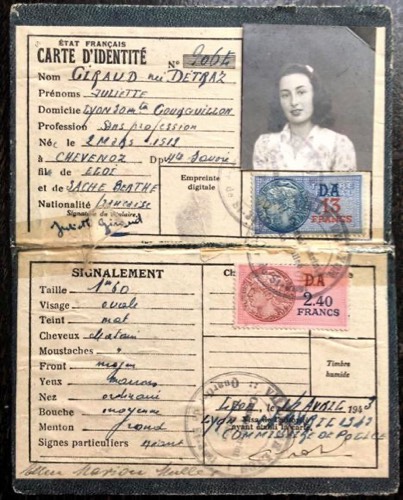 ÉTAT FRANÇAIS
CARTE D'IDENTITÉ
Nº 2064
Nom GIRAUD née DETRAZ
Prénoms JULIETTE
Domicile LYON 30 mtée Gourguillon
Profession sans profession
Née le 2 Mars 1919
à CHEVENOZ Dpt Hte Savoie
fils de ELOI
et de SACHE BERTHE
Nationalité française
Signature du titulaire,
Juliette Giraud
Empreinte
digitale
DA
13
FRANCS
SIGNALEMENT
Taille 1m60
Visage ovale
Teint mat
Cheveux chatain
Moustaches "
Front moyen
Yeux marrons
Nez ordinaire
Bouche moyenne
Menton rond
Signes particuliers néant
DA
2.40
FRANCS
Timbre
humide
LYON, le 16 AVRIL 1943
COMMISSAIRE DE POLICE
Marion Muller